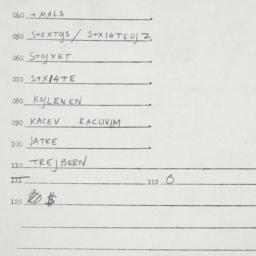 040 → MAL3
050 S+EXTOJS / S+X14TEOJ2
060 S+OJXET
070 S+X14TE
080 KOJLENEN
090 KACEV KACUVJM
100 JATKE
110 TREJBERN
111 112 O
120 $